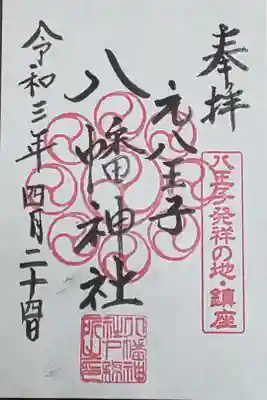 奉拝
八王子発祥の地・鎮座
元八王子
八幡神社
令和三年四月二十四日